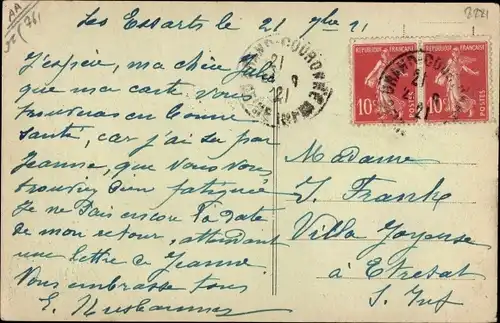 AA
761
8881
Les Essarts le 21 9bre 21
J'espère, ma chère Julia
que ma carte vous
trouvera en bonne
santé, car j'ai su par
Jeanne, que vous vous
trouviez bien fatiguée
Je ne sais encore la date
de mon retour, attendant
une lettre de Jeanne.
Vous embrasse tous
E.
GRAND-COURONNE
21
9
21
REPUBLIQUE FRANÇAISE
10c
POSTES
REPUBLIQUE FRANÇAISE
10c
POSTES
GRAND-COURONNE
21
9
21
Madame
J. Franck
Villa Joyeuse
à Etretat
S. Inf